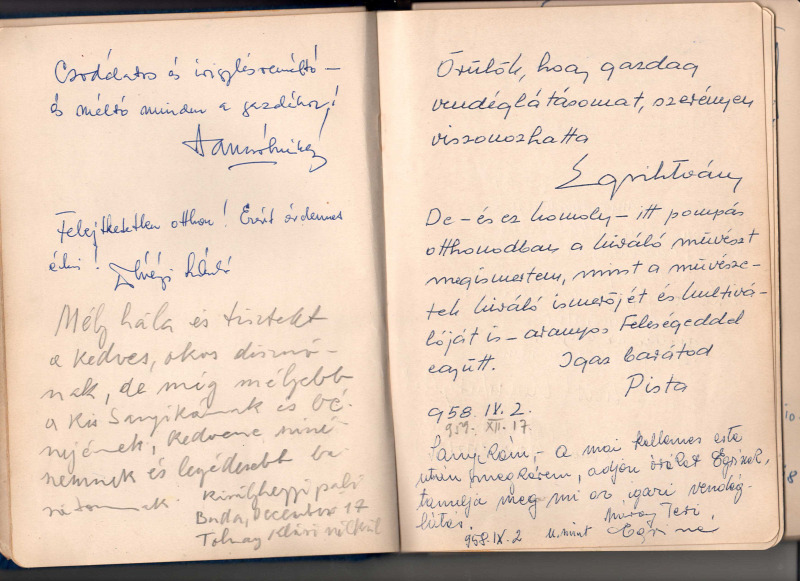 Csodálatos és irigylésreméltó –
és méltó minden a gazdához!
Felejthetetlen otthon! Ezért érdemes
élni!
Mély hála és tisztelet
a kedves, okos disznó-
nak, de még mélyebb
a kis Sanyikának és
nejének, kedvenc
nemnek és legédesebb ba
rátomnak
Királyhegyi Pali
Buda, December 17
Tolnay Klári nélkül
Örülök, hogy gazdag
vendéglátásomat, szerényen
viszonozhatta
Egri István
De – és ez komoly – itt pompás
otthonodban a kiváló művészt
megismertem, mint a művésze-
tek kiváló ismerőjét és kultivá-
lóját is – aranyos Feleségeddel
együtt. Igaz barátod
Pista
958. IX. 2.
959. XII. 17.
Sanyikám, – a mai kellemes este
után megkérem, adjon órákat Egrinek,
tanulja meg mi az igazi vendég-
látás.
958. IX. 2 u. mint